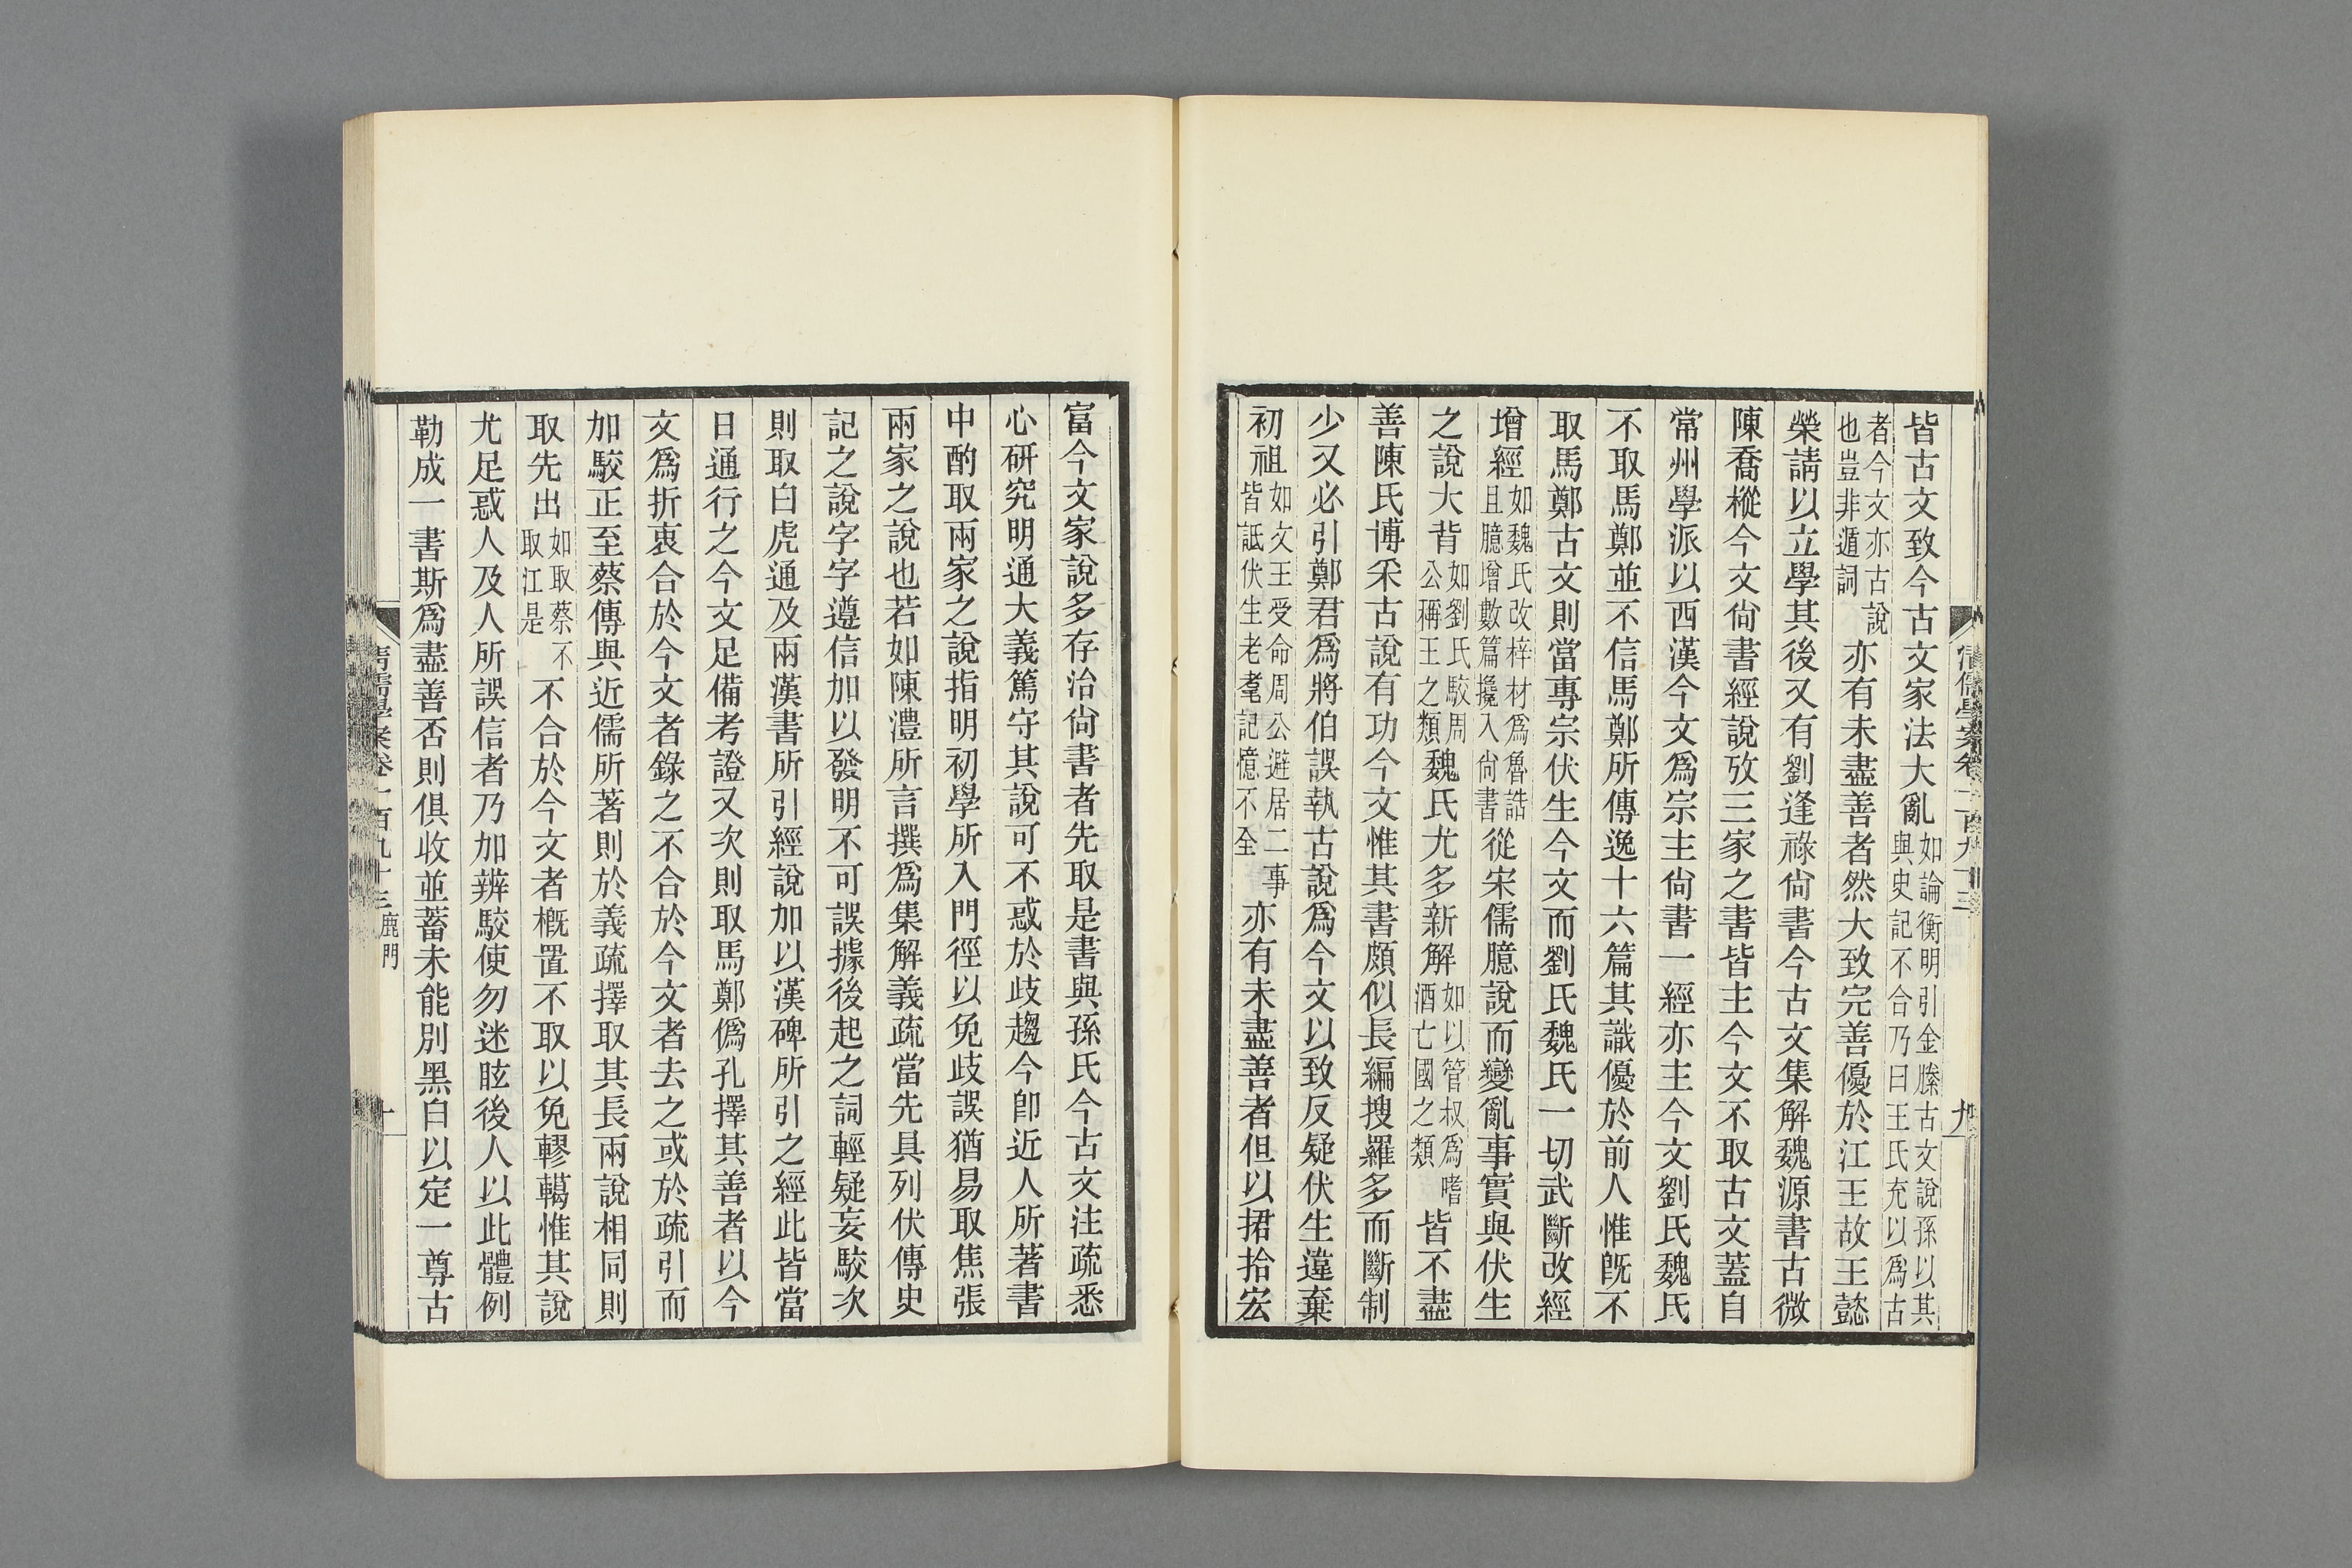 皆古文致今古文家法大亂如論衡明引金縢古文說孫以其與史記不合乃曰王氏充以爲古
者今文亦古說也豈非遁詞亦有未盡善者然大致完善優於江王故王懿
榮請以立學其後又有劉逢祿尙書今古文集解魏源書古微
陳喬樅今文尙書經說攷三家之書皆主今文不取古文蓋自
常州學派以西漢今文爲宗主尙書一經亦主今文劉氏魏氏
不取馬鄭並不信馬鄭所傳逸十六篇其識優於前人惟旣不
取馬鄭古文則當專宗伏生今文而劉氏魏氏一切武斷改經
增經如魏氏改梓材爲魯誥且臆增數篇攙入尙書從宋儒臆說而變亂事實與伏生
之說大背如劉氏駮周公稱王之類魏氏尤多新解如以管叔爲嗜酒亡國之類皆不盡
善陳氏博采古說有功今文惟其書頗似長編搜羅多而斷制
少又必引鄭君爲將伯誤執古說爲今文以致反疑伏生違棄
初祖如文王受命周公避居二事皆詆伏生老耄記憶不全亦有未盡善者但以捃拾宏
清儒學案卷一百九十三
九
富今文家說多存治尙書者先取是書與孫氏今古文注疏悉
心研究明通大義篤守其說可不惑於歧趨今卽近人所著書
中酌取兩家之說指明初學所入門徑以免歧誤猶易取焦張
兩家之說也若如陳澧所言撰爲集解義疏當先具列伏傳史
記之說字字遵信加以發明不可誤據後起之詞輕疑妄駮次
則取白虎通及兩漢書所引經說加以漢碑所引之經此皆當
日通行之今文足備考證又次則取馬鄭僞孔擇其善者以今
文爲折衷合於今文者錄之不合於今文者去之或於疏引而
加駮正至蔡傳與近儒所著則於義疏擇取其長兩說相同則
取先出如取蔡不取江是不合於今文者槪置不取以免轇轕惟其說
尤足惑人及人所誤信者乃加辨駮使勿迷眩後人以此體例
勒成一書斯爲盡善否則俱收並蓄未能別黑白以定一尊古
清儒學案卷一百九十三 鹿門
十